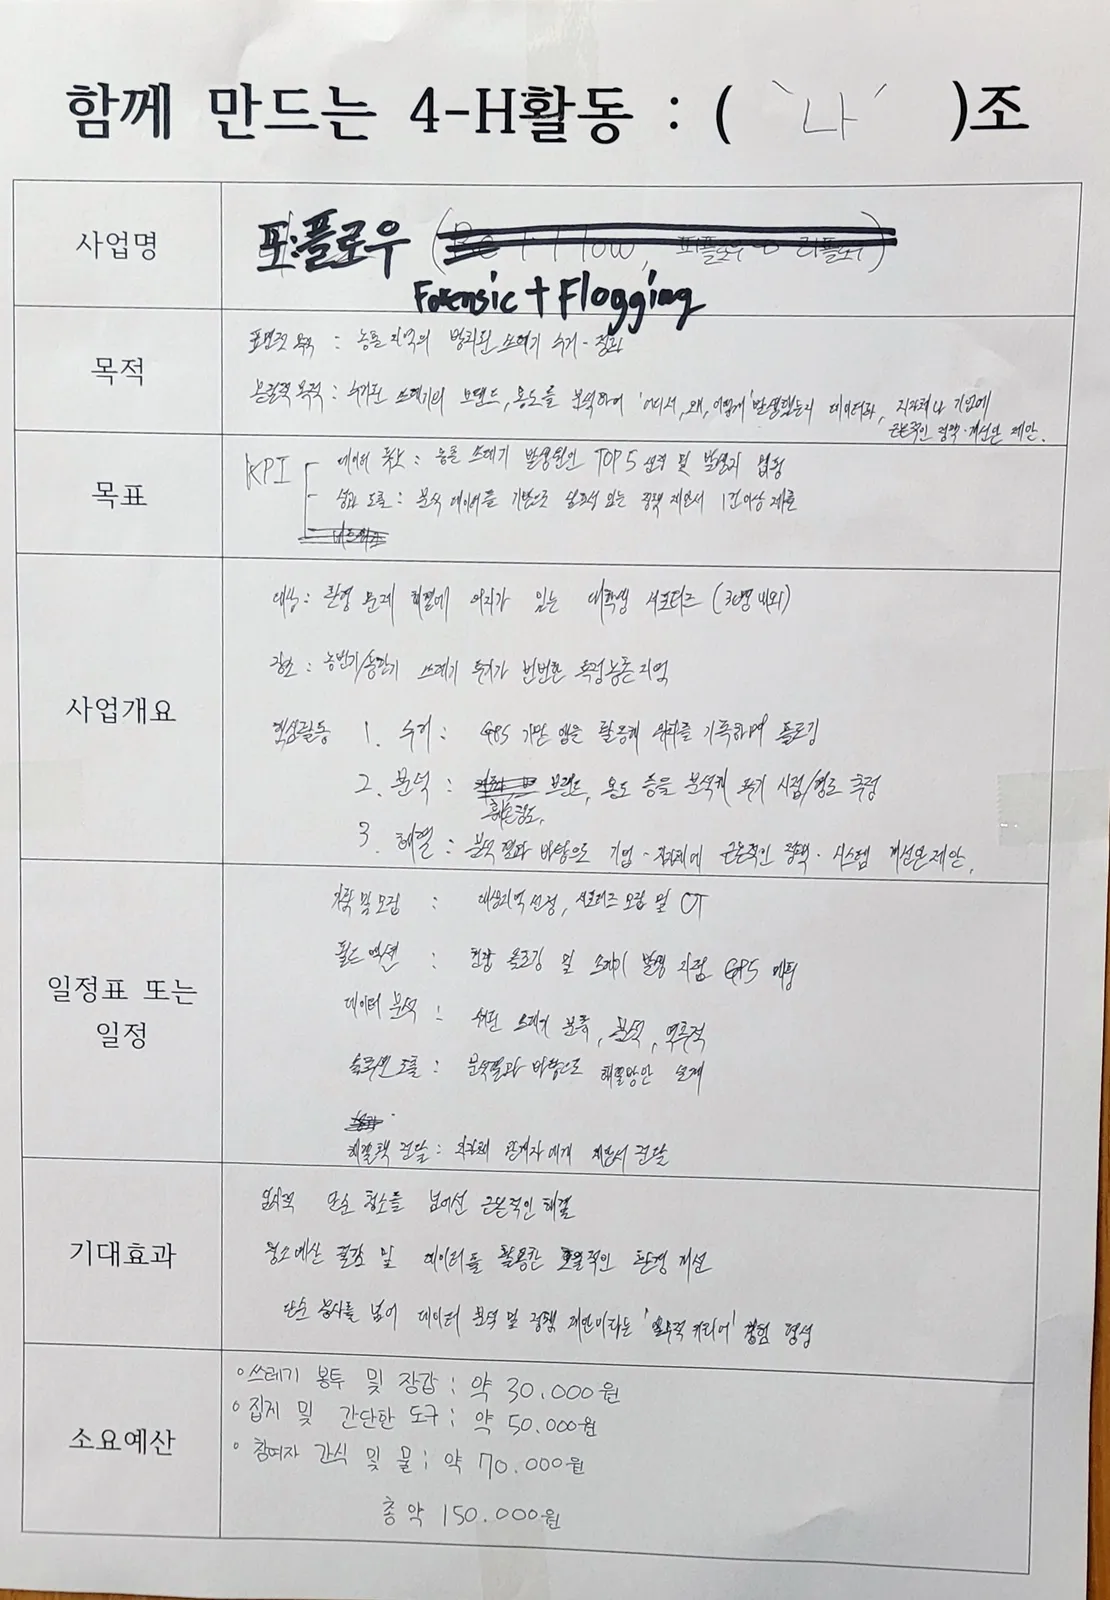 함께 만드는 4-H활동 : ( '나' )조
사업명
포:플로우
Forensic + Flogging
목적
표면적 목적 : 농촌 지역의 방치된 쓰레기 수거·정화
본질적 목적 : 수거된 쓰레기의 브랜드, 용도를 분석하여 '어디서, 왜, 어떻게' 발생했는지 데이터화, 지자체나 기업에
근본적인 정책·개선안 제안.
목표
KPI
데이터 확보 : 농촌 쓰레기 발생원인 TOP 5 선정 및 발생지 맵핑
성과 도출 : 분석 데이터를 기반으로 실효성 있는 정책 제안서 1건 이상 제출
사업개요
대상 : 환경 문제 해결에 의지가 있는 대학생 서포터즈 (30명 내외)
장소 : 농번기/농한기 쓰레기 투기가 빈번한 특정 농촌 지역
핵심활동 1. 수거 : GPS 기반 앱을 활용해 위치를 기록하며 플로깅
2. 분석 : 브랜드, 용도 등을 분석해 투기 시점/경로 추정
훼손정도,
3. 해결 : 분석 결과 바탕으로 기업·지자체에 근본적인 정책·시스템 개선안 제안.
일정표 또는
일정
기획 및 모집 : 대상지역 선정, 서포터즈 모집 및 OT
필드 액션 : 현장 플로깅 및 쓰레기 발생 지점 GPS 매핑
데이터 분석 : 쓰레기 분류, 분석, 역추적
솔루션 도출 : 분석결과 바탕으로 해결방안 설계
해결책 전달 : 지자체 관계자에게 제안서 전달
기대효과
일시적 단순 청소를 넘어선 근본적인 해결
청소예산 절감 및 데이터를 활용한 효율적인 환경 개선
단순 봉사를 넘어 데이터 분석 및 정책 제안이라는 '실무적 커리어' 경험 형성
소요예산
○ 쓰레기 봉투 및 장갑 : 약 30.000원
○ 집게 및 간단한 도구 : 약 50.000원
○ 참여자 간식 및 물 : 약 70.000원
총 약 150.000원